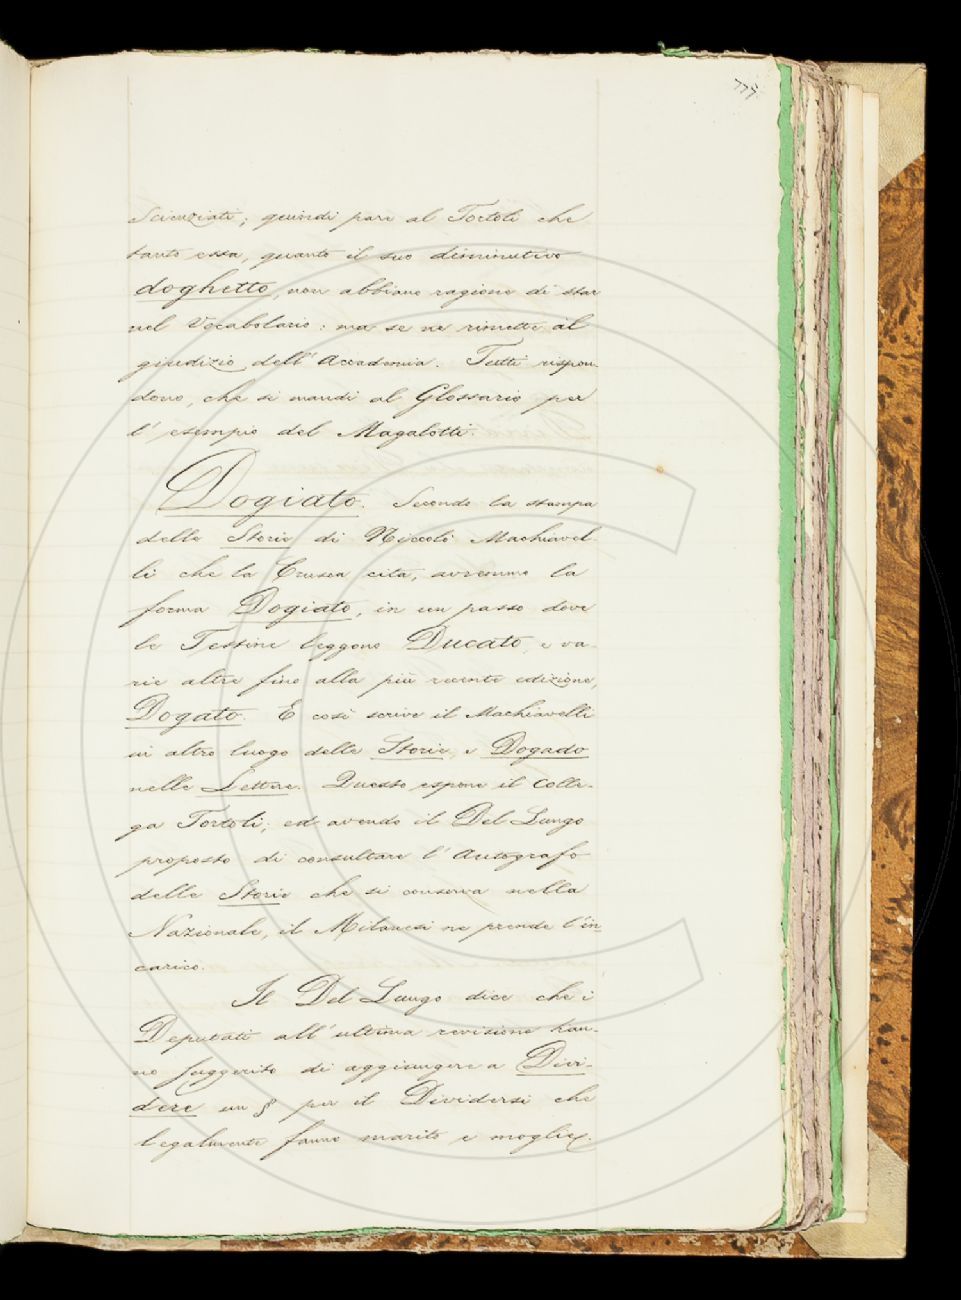 777.
Scienziati; quindi pare al Tortoli che
tanto essa, quanto il suo diminutivo
doghetto, non abbiano ragione di star
nel Vocabolario: ma se ne rimette al
giudizio dell'Accademia. Tutti rispon-
dono, che si mandi al Glossario per
l'esempio del Magalotti.
Dogiato. Secondo la stampa
delle Storie di Niccolò Machiavel-
li che la Crusca cita, avremmo la
forma Dogiato, in un passo dove
le Testine leggono Ducato, e va-
rie altre fino alla più recente edizione,
Dogato. E così scrive il Machiavelli
in altro luogo delle Storie, e Dogado
nelle Lettere. Questo espone il Colle-
ga Tortoli; ed avendo il Del Lungo
proposto di consultare l'Autografo
delle Storie che si conserva nella
Nazionale, il Milanesi ne prende l'in-
carico.
Il Del Lungo dice che i
Deputati all'ultima revisione han-
no suggerito di aggiungere a Divi-
dere un § per il Dividersi che
legalmente fanno marito e moglie.